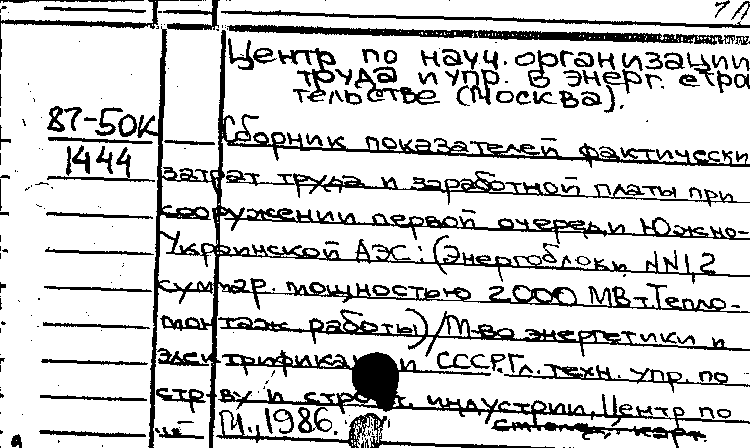 Центр по науч. организации
труда и упр. в энерг. стро
тельстве (Москва).
87-50К
1444
Сборник показателей фактически
затрат труда и заработной платы при
сооружении первой очереди Южно-
Украинской АЭС: (Энергоблоки NN1,2
суммар. мощностью 2000 МВт. Тепло-
монтаж работы) / М-во энергетики и
электрификации СССР. Гл. техн. упр. по
стр-ву и строит. индустрии, Центр по
М., 1986.